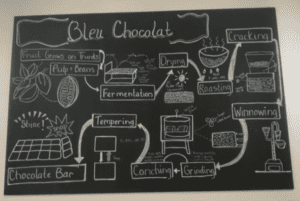 Bleu Chocolat
Fruit Grows on Trunks
Pulp + Beans
Fermentation
Drying
Roasting
Cracking
Winnowing
Grinding
Conching
Tempering
Shine!
Chocolate Bar